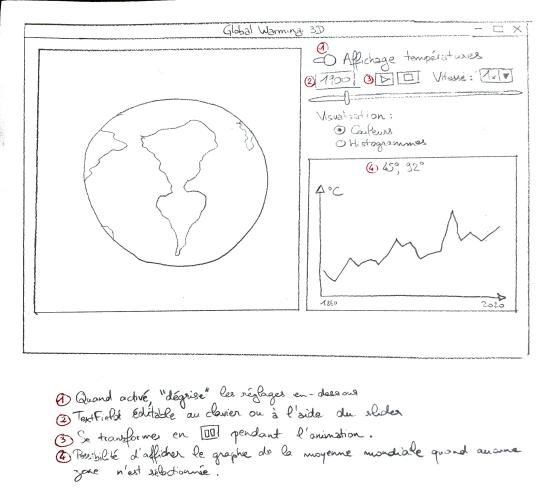 Global Warming 3D
①
Affichage températures
② 1900 ③ Vitesse : 1x
Visualisation :
Couleurs
Histogrammes
④ 45°, 92°
°C
1880 2020
① Quand activé, "dégrise" les réglages en-dessous
② TextField éditable au clavier ou à l'aide du slider
③ Se transforme en pendant l'animation.
④ Possibilité d'afficher le graphe de la moyenne mondiale quand aucune
zone n'est sélectionnée.